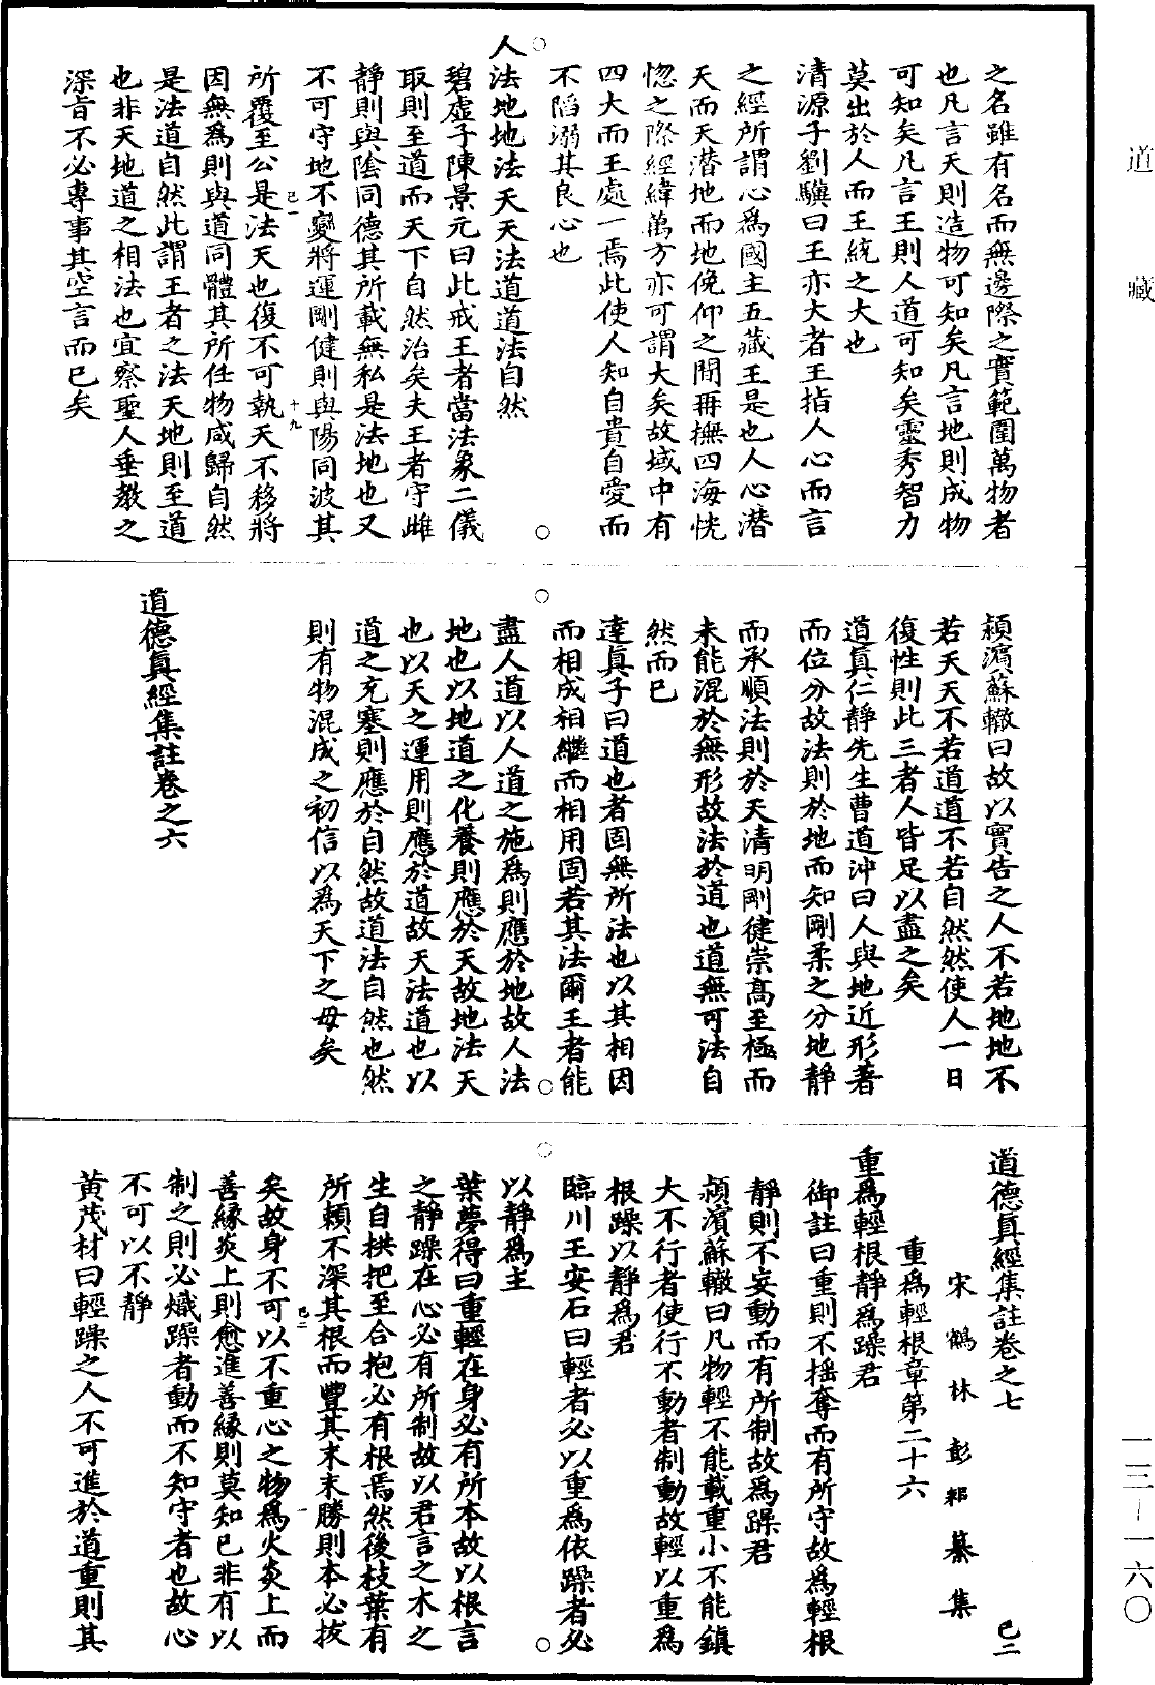 道藏
之名雖有名而無邊際之實範圍萬物者
也凡言天則造物可知矣凡言地則成物
可知矣凡言王則人道可知矣靈秀智力
莫出於人而王統之大也
清源子劉驥曰王亦大者王指人心而言
之經所謂心爲國主五藏王是也人心潜
天而天潜地而地俛仰之間再撫四海恍
惚之際經緯萬方亦可謂大矣故域中有
四大而王處一焉此使人知自貴自愛而
不陷溺其良心也
人法地地法天天法道道法自然
碧虛子陳景元曰此戒王者當法象二儀
取則至道而天下自然治矣夫王者守雌
靜則與陰同德其所載無私是法地也又
不可守地不變將運剛健則與陽同波其
己一
十九
所覆至公是法天也復不可執天不移將
因無爲則與道同體其所任物咸歸自然
是法道自然此謂王者之法天地則至道
也非天地道之相法也宜察聖人垂教之
深旨不必專事其空言而已矣
潁濱蘇轍曰故以實告之人不若地地不
若天天不若道道不若自然然使人一日
復性則此三者人皆足以盡之矣
道真仁靜先生曹道沖曰人與地近形著
而位分故法則於地而知剛柔之分地靜
而承順法則於天清明剛健崇高至極而
未能混於無形故法於道也道無可法自
然而已
達真子曰道也者固無所法也以其相因
而相成相繼而相用固若其法爾王者能
盡人道以人道之施爲則應於地故人法
地也以地道之化養則應於天故地法天
也以天之運用則應於道故天法道也以
道之充塞則應於自然故道法自然也然
則有物混成之初信以爲天下之母矣
道德真經集註卷之六
道德真經集註卷之七
己二
宋鶴林彭耜纂集
重爲輕根章第二十六
重爲輕根靜爲躁君
御註曰重則不搖奪而有所守故爲輕根
靜則不妄動而有所制故爲躁君
潁濱蘇轍曰凡物輕不能載重小不能鎮
大不行者使行不動者制動故輕以重爲
根躁以靜爲君
臨川王安石曰輕者必以重爲依躁者必
以靜爲主
葉夢得曰重輕在身必有所本故以根言
之靜躁在心必有所制故以君言之木之
生自拱把至合抱必有根焉然後枝葉有
所賴不深其根而豐其末末勝則本必拔
己二
一
矣故身不可以不重心之物爲火炎上而
善緣炎上則愈進善緣則莫知已非有以
制之則必熾躁者動而不知守者也故心
不可以不靜
黃茂材曰輕躁之人不可進於道重則其
一三—一六〇